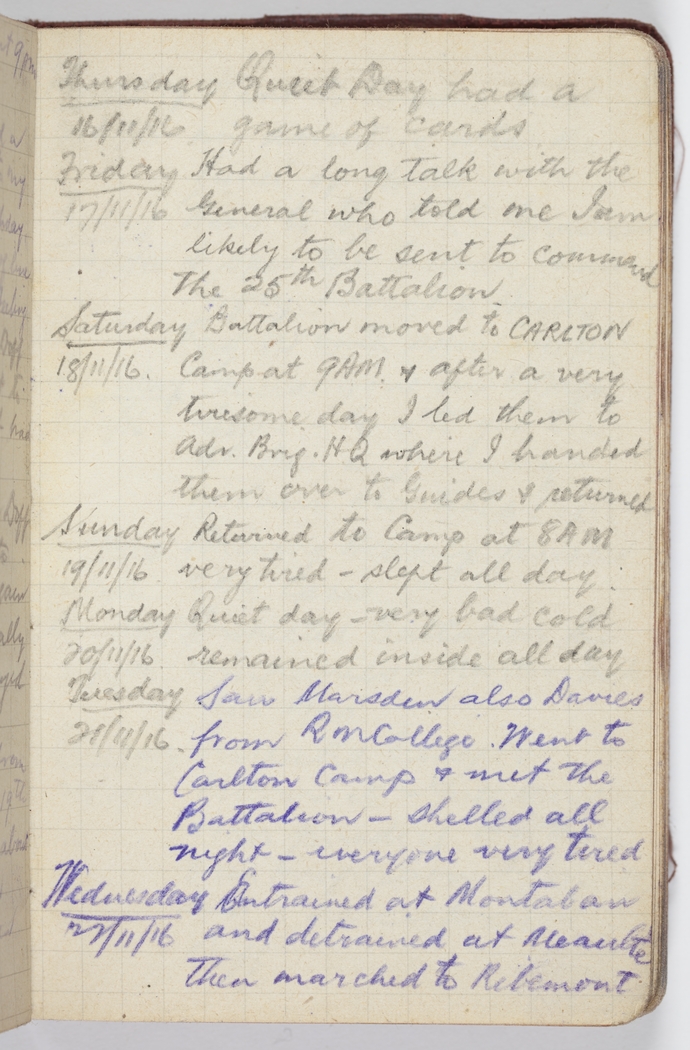 Thursday Quiet Day had a
16/11/16 game of cards
Friday Had a long talk with the
17/11/16 General who told me I am
likely to be sent to command
the 25th Battalion
Saturday Battalion moved to CARLTON
18/11/16. Camp at 9AM. & after a very
tiresome day I led them to
Adv. Brig. HQ where I handed
them over to Guides & returned
Sunday Returned to Camp at 8AM
19/11/16 very tired - slept all day
Monday Quiet day - very bad cold
20/11/16 remained inside all day
Tuesday Saw Marsden also Davies
21/11/16. from RMCollege. Went to
Carlton Camp & met the
Battalion - shelled all
night - everyone very tired
Wednesday Entrained at Montaban
22/11/16 and detrained at Meaulte
then marched to Ribemont